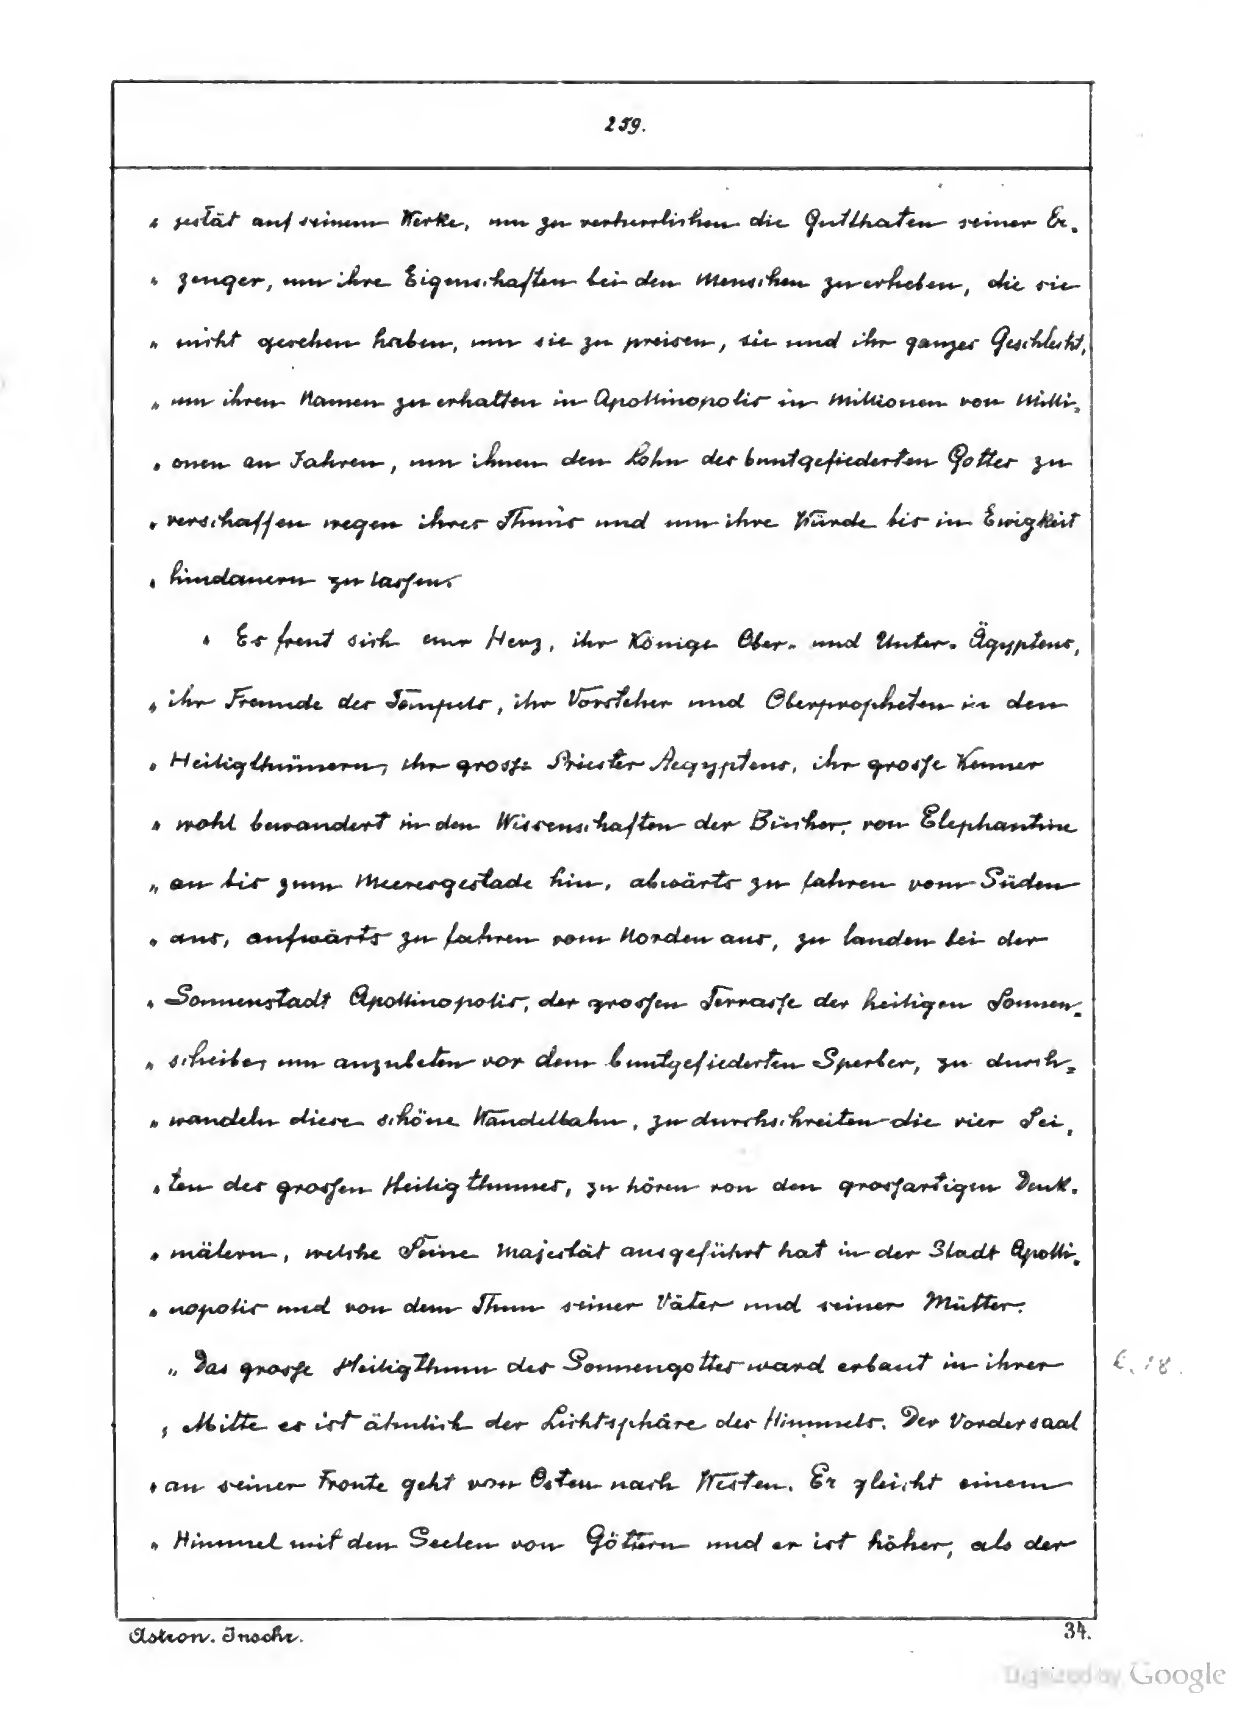 259.
„ jestät auf seinem Werke, um zu verherrlichen die Gutthaten seiner Er-
„ zeuger, um ihre Eigenschaften bei den Menschen zu erheben, die sie
„ nicht gesehen haben, um sie zu preisen, sie und ihr ganzes Geschlecht,
„ um ihren Namen zu erhalten in Apollinopolis in Millionen von Milli-
„ onen an Jahren, um ihnen den Lohn des buntgefiederten Gottes zu
„ verschaffen wegen ihres Thuns und um ihre Würde bis in Ewigkeit
„ hindauern zu lassen.
„ Es freut sich eur Herz, ihr Könige Ober- und Unter-Ägyptens,
„ ihr Freunde des Tempels, ihr Vorsteher und Oberpropheten in den
„ Heiligthümern, ihr grosse Priester Aegyptens, ihr grosse Kenner
„ wohl bewandert in den Wissenschaften der Bücher, von Elephantine
„ an bis zum Meeresgestade hin, abwärts zu fahren vom Süden
„ aus, aufwärts zu fahren vom Norden aus, zu landen bei der
„ Sonnenstadt Apollinopolis, der grossen Terrasse der heiligen Sonnen-
„ scheibe, um anzubeten vor dem buntgefiederten Sperber, zu durch-
„ wandeln diese schöne Wandelbahn, zu durchschreiten die vier Sei-
„ ten des grossen Heiligthumes, zu hören von den grossartigen Denk-
„ mälern, welche Seine Majestät ausgeführt hat in der Stadt Apolli-
„ nopolis und von dem Thun seiner Väter und seiner Mütter.
„ Das grosse Heiligthum des Sonnengottes ward erbaut in ihrer
„ Mitte es ist ähnlich der Lichtsphäre des Himmels. Der Vordersaal
„ an seiner Fronte geht von Osten nach Westen. Er gleicht einem
„ Himmel mit den Seelen von Göttern und er ist höher, als der
Astron. Inschr.
34.
Digitized by Google